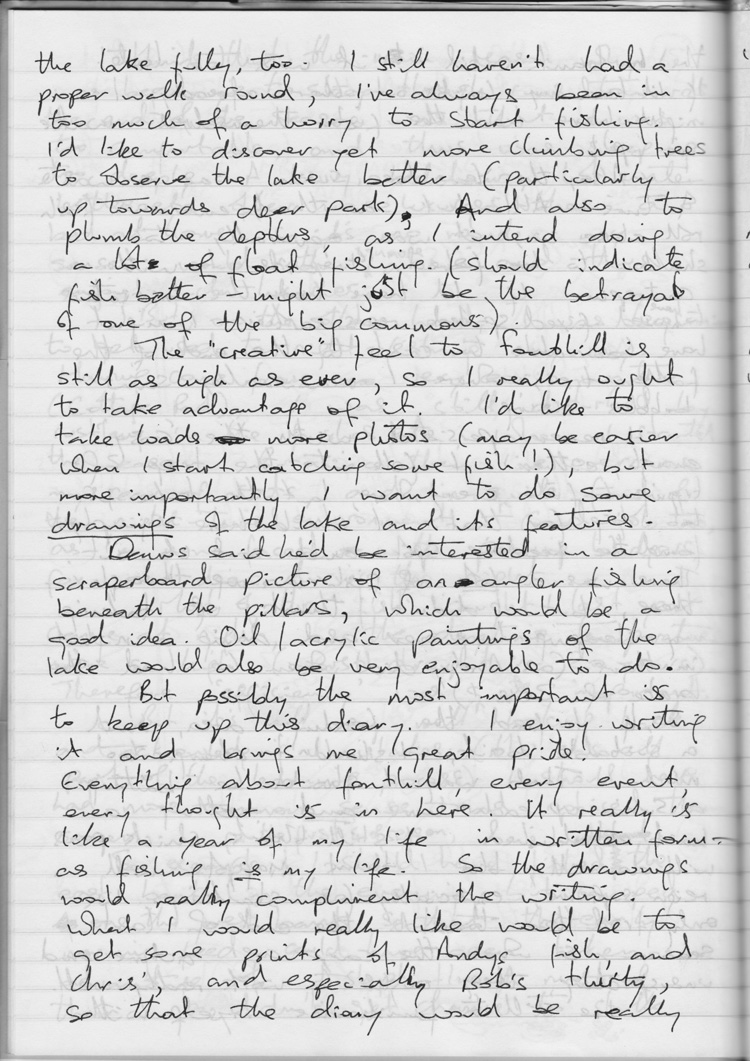 the lake fully, too. I still haven't had a
proper walk round, I've always been in
too much of a hurry to start fishing.
I'd like to discover yet more climbing trees
to observe the lake better (particularly
up towards deer park). And also to
plumb the depths, as I intend doing
a lot of float fishing. (should indicate
fish better - might just be the betrayal
of one of the big commons)
The "creative" feel to Fonthill is
still as high as ever, so I really ought
to take advantage of it. I'd like to
take loads more photos (may be easier
when I start catching some fish!), but
more importantly I want to do some
drawings of the lake and its features.
Dennis said he'd be interested in a
scraperboard picture of an angler fishing
beneath the pillars, which would be a
good idea. Oil/acrylic paintings of the
lake would also be very enjoyable to do.
But possibly the most important is
to keep up this diary. I enjoy writing
it and brings me great pride!
Everything about Fonthill, every event,
every thought is in here. It really is
like a year of my life in written form -
as fishing is my life. So the drawings
would really compliment the writing.
What I would really like would be to
get some prints of Andys fish, and
Chris', and especially Bob's thirty,
so that the diary would be really